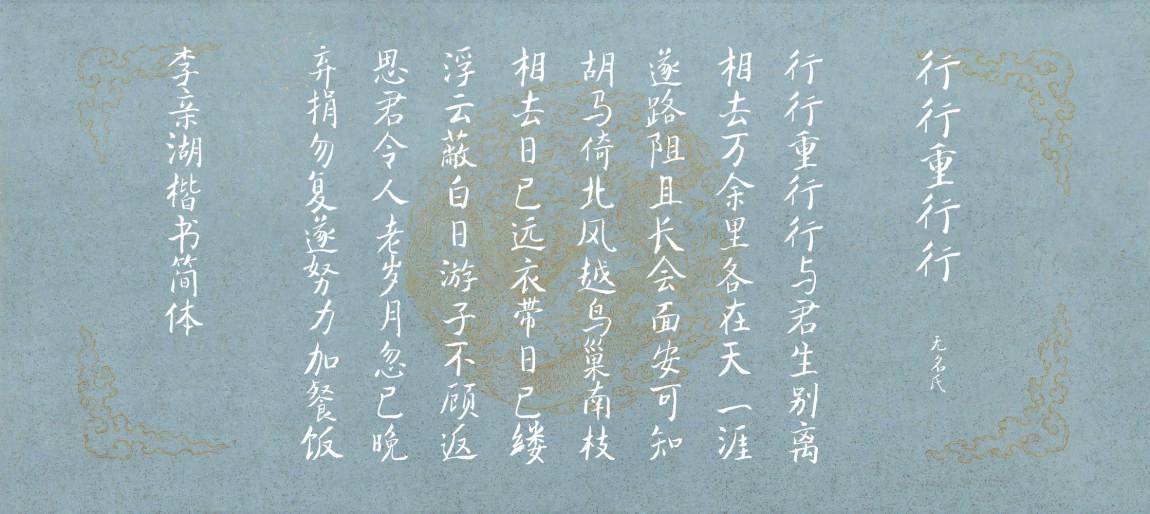 行行重行行
无名氏
行行重行行与君生别离
相去万余里各在天一涯
遂路阻且长会面安可知
胡马倚北风越鸟巢南枝
相去日已远衣带日已缕
浮云蔽白日游子不顾返
思君令人老岁月忽已晚
弃捐勿复遂努力加餐饭
李亲湖楷书简体